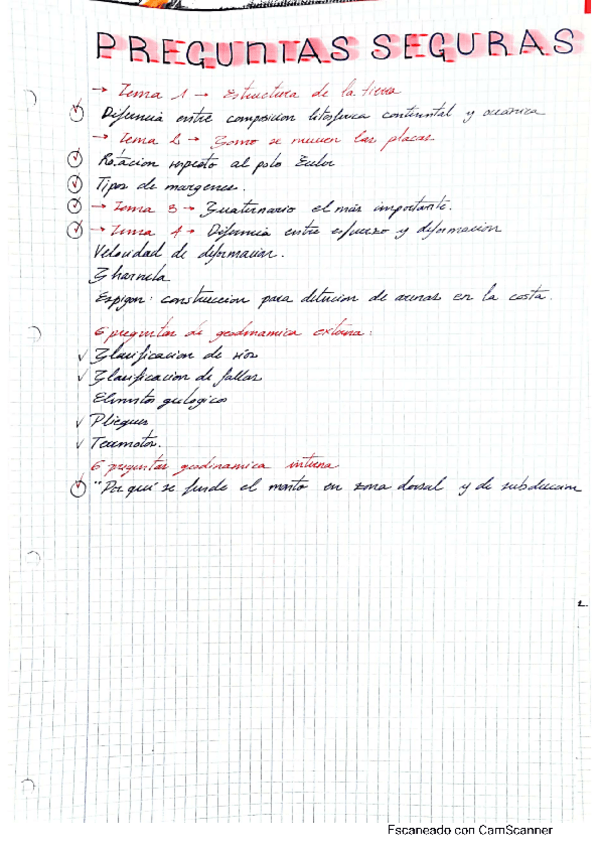 PREGUNTAS SEGURAS
→ Tema 1 → Estructura de la tierra
Diferencia entre composicion litosferica continental y oceánica
→ Tema 2 → Como se mueven las placas
Rotación respecto al polo Euler
Tipos de margenes.
→ Tema 3 → Cuaternario el más importante.
→ Tema 4 → Diferencia entre esfuerzo y deformación
Velocidad de deformacion.
Charnela
Espigon: construccion para de arenas en la costa.
6 preguntas de geodinamica externa:
Clasificacion de rios
Clasificacion de fallas
Elementos geologicos
Pliegues
Terremotos.
6 preguntas geodinamica interna
"Por qué se funde el manto en zona dorsal y de subduccion
Escaneado con CamScanner